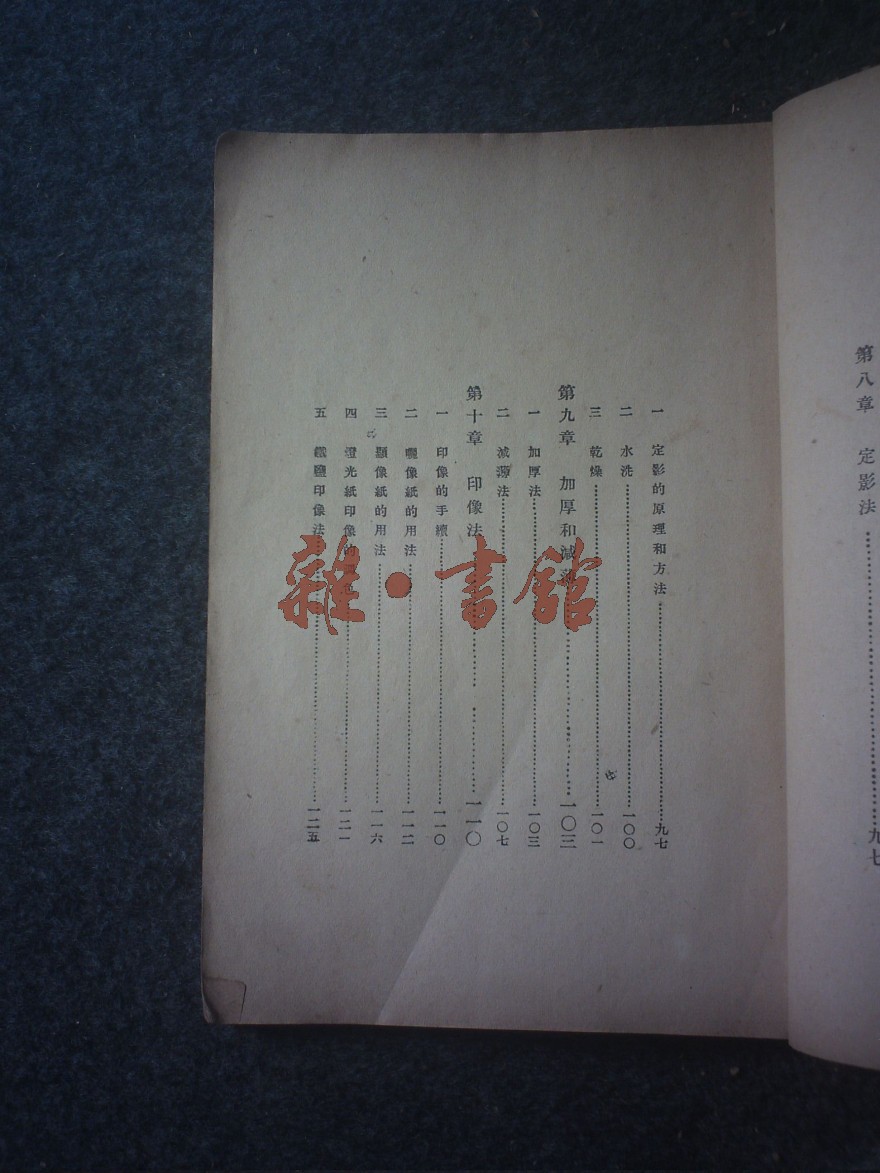 第八章 定影法………九七
一 定影的原理和方法………九七
二 水洗………一〇〇
三 乾燥………一〇一
第九章 加厚和減………一〇三
一 加厚法………一〇三
二 減薄法………一〇七
第十章 印像法………一一〇
一 印像的手續………一一〇
二 曬像紙的用法………一一二
三 顯像紙的用法………一一六
四 澄光紙印像的………一二一
五 鐵鹽印像法………一二五
雜·書館